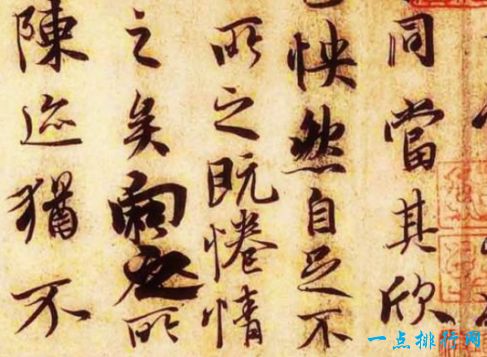 同當其欣
怏然自足不
所之既惓情
之矣向之所
陳迹猶不
一点排行网